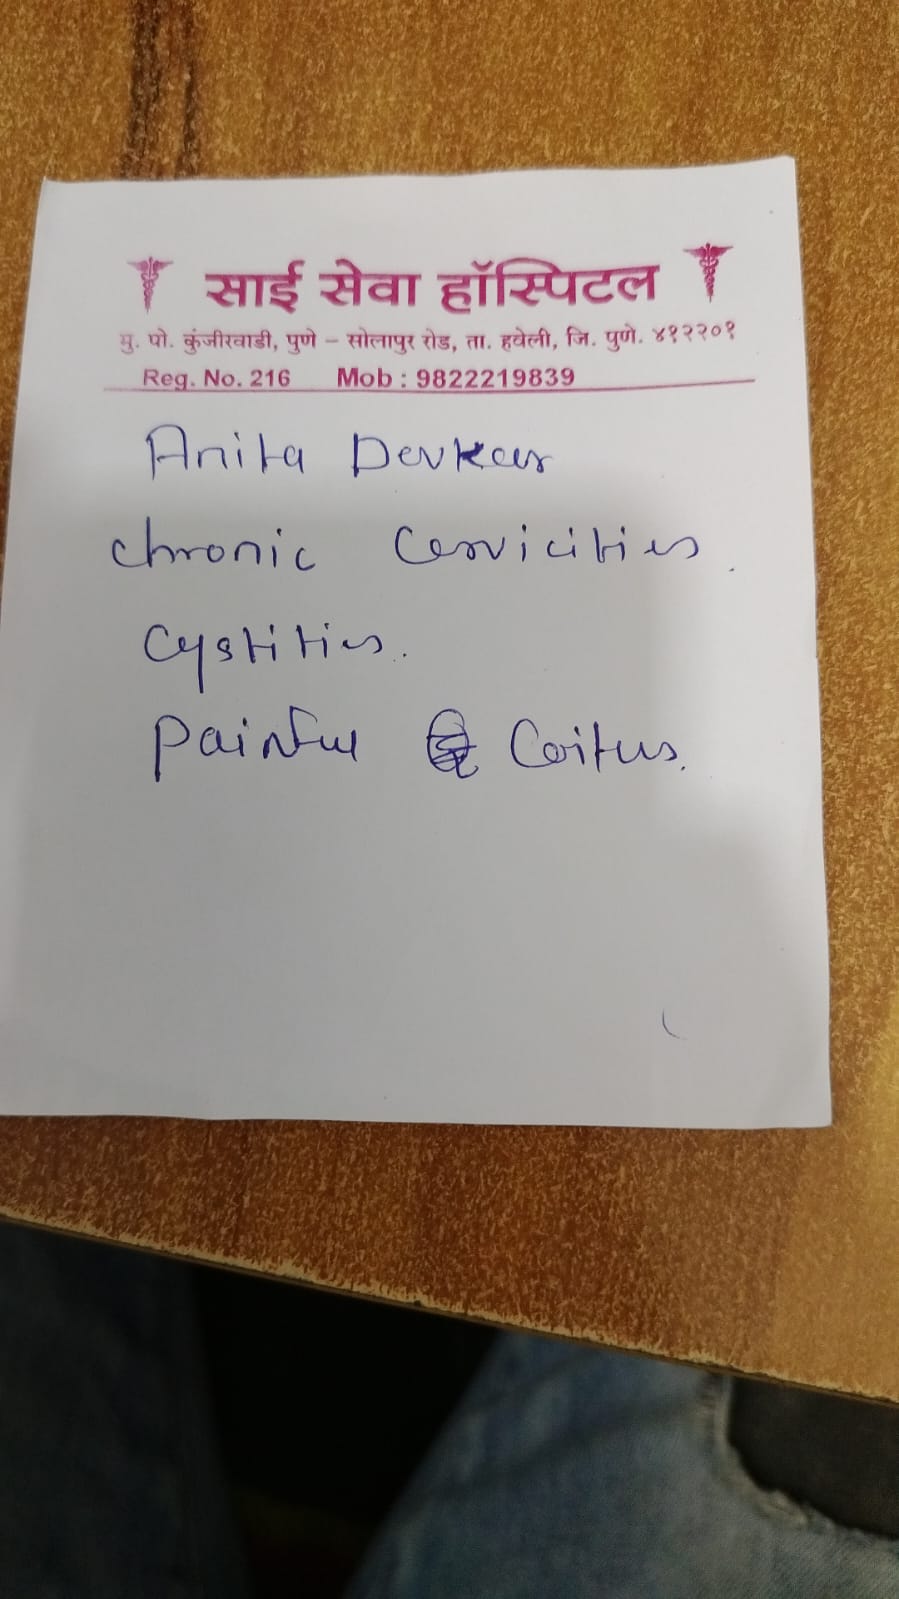 साई सेवा हॉस्पिटल
मु. पो. कुंजीरवाडी, पुणे – सोलापुर रोड, ता. हवेली, जि. पुणे. ४१२२०१
Reg. No. 216 Mob : 9822219839
Anita Devkar
Chronic Cervicities.
Cystities.
Painful Coitus.